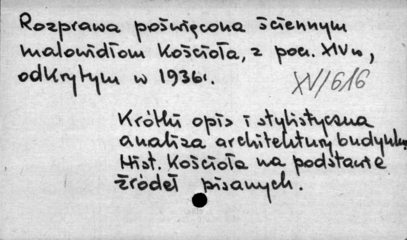 Rozprawa poświęcona ściennym
malowidłom Kościoła, z poc. XIV w,
odkrytym w 1936r.
XV/616
Krótki opis i stylistyczna
analiza architektury budynku,
Hist. Kościoła na podstawie
źródeł pisanych.